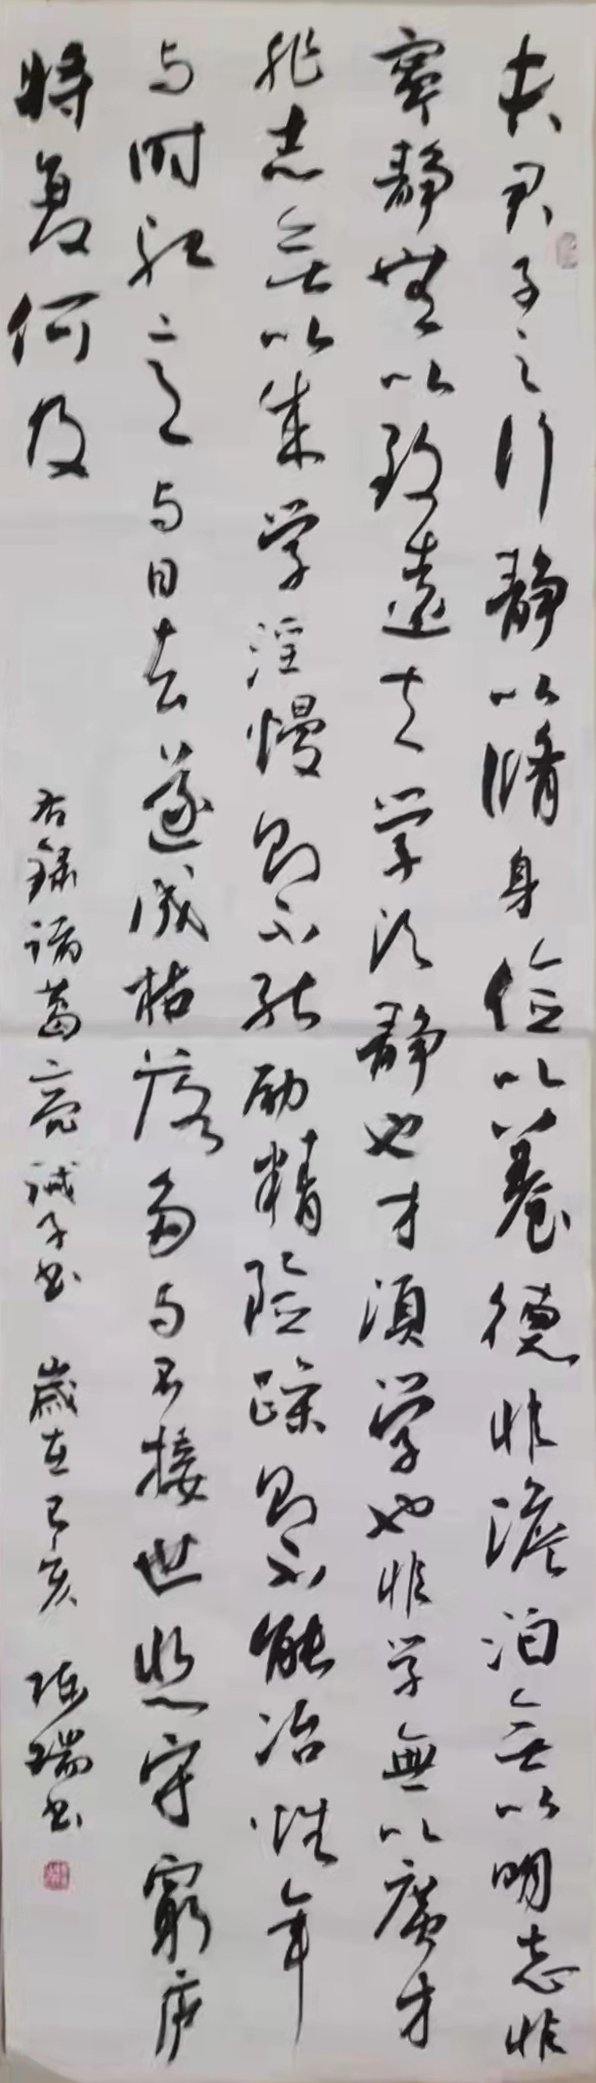 夫君子之行静以脩身俭以養德非澹泊無以明志非
寧静無以致遠夫学須静也才須学也非学無以廣才
非志無以成学淫慢则不能励精险躁则不能冶性年
与时驰意与日去遂成枯落多与不接世悲守窮庐
将复何及
右録諸葛亮诫子书 歲在己亥 陈瑞书